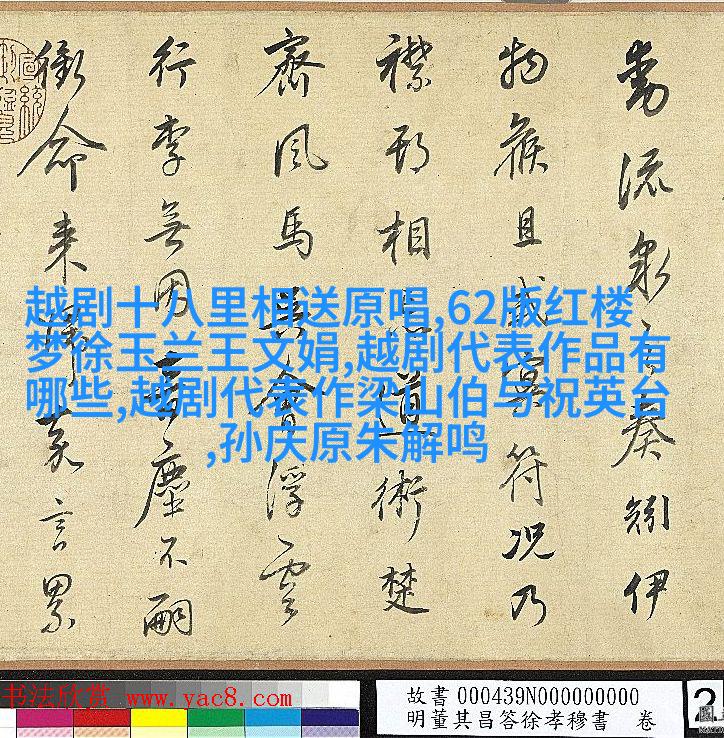 動流泉之奏矧伊
物候且或冥符况乃
襟期相忘道術楚
齊風馬吳會浮雲
行李無因音塵不嗣
銜命来歸嘉言累
越剧十八里相送原唱,62版红楼
梦徐玉兰王文娟,越剧代表作品有
哪些,越剧代表作梁山伯与祝英台
,孙庆原朱解鸣
书法欣赏 www.yac8.com
故書 000439N000000000
明董其昌答徐孝穆書 卷
2